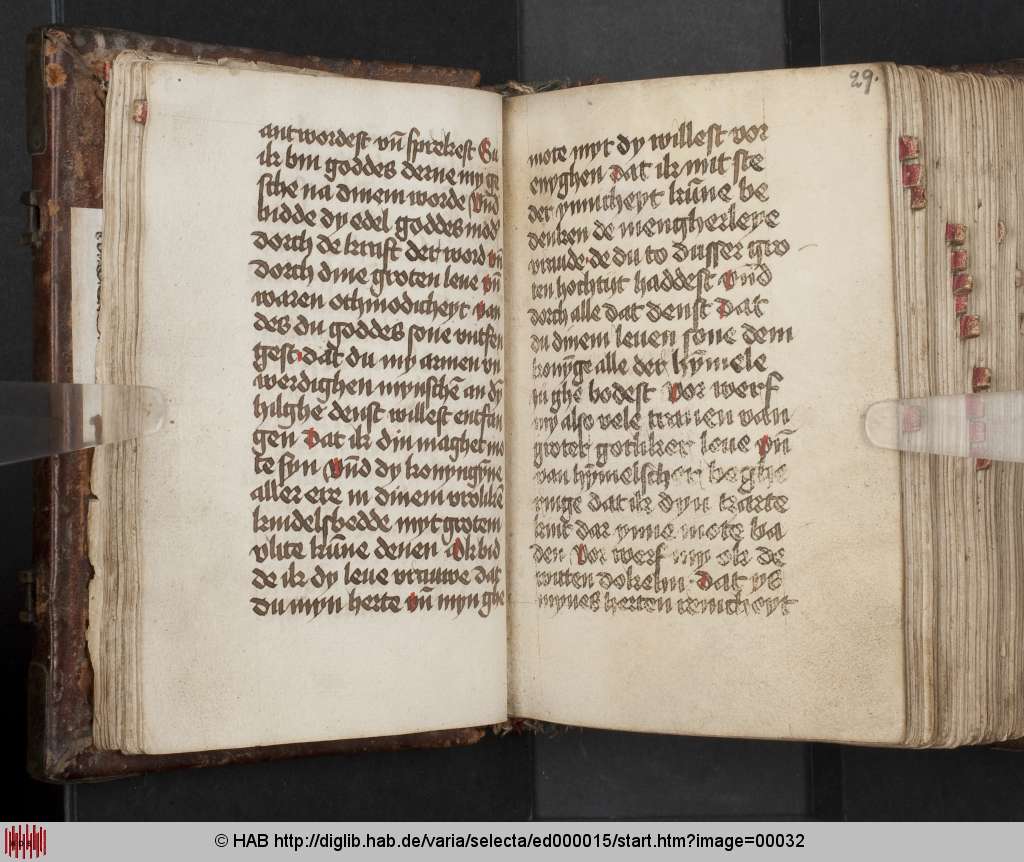 antwordest vn̄ sprekest Su
ik bin goddes derne my ge
sche na dinem worde Vnd
bidde dy edel goddes mod
dorch de kraft der word vn̄
dorch dine groten leue vn̄
waren othmodicheyt van
des du goddes sone vntfen
gest dat du my armen vn
werdighen mynschē an dȳ
hilghe denst willest entfan
gen Dat ik din maghet mo
te syn Vn̄d dy konyngȳne
aller ere in dinem vrolikē
kindelsbedde myt grotem
vlite kūne denen Ok bid
de ik dy leue vrauwe dat
du myn herte vn̄ myn ghe
29.
mote myt dy willest vor
enyghen Dat ik mit ste
der ynnicheyt kūne be
denken de mengherleye
vraude de du to dusser gro
ten hochtijt haddest Vn̄d
dorch alle dat denst Dat
du dinem leuen sone dem
konyge alle der hȳmele
in ghe bodest Vor werf
my also vele tranen van
groter gotliker leue Vn̄
van hȳmelscher beghe
ringe dat ik dyn trarte
kint dar ynne mote ba
den Vor werf my ok de
witten dokelin Dat ys
mynes herten renicheyt
© HAB http://diglib.hab.de/varia/selecta/ed000015/start.htm?image=00032